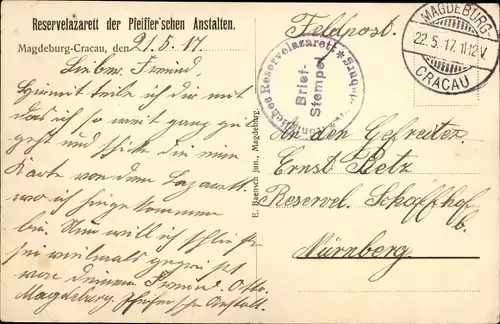 Reservelazarett der Pfeiffer'schen Anstalten.
Magdeburg-Cracau, den 21.5.17.
Lieber Freund,
Hiermit teile ich dir mit
das ich so weit ganz gut
geht und schicke dir eine
Karte von dem Lazarett
wo ich hingekommen
bin. Nun will ich schließe
sei vielmals gegrüßt
von deinem Freund. Otto.
Magdeburg. Pfeiffersche Anstalt.
E. Baensch jun., Magdeburg.
Feldpost.
Reservelazarett
Brief-
Stempel
MAGDEBURG-
22.5.17. 11-12V.
CRACAU
An den Gefreiten
Ernst Betz
Reservel. Schafhof
b.
Nürnberg.